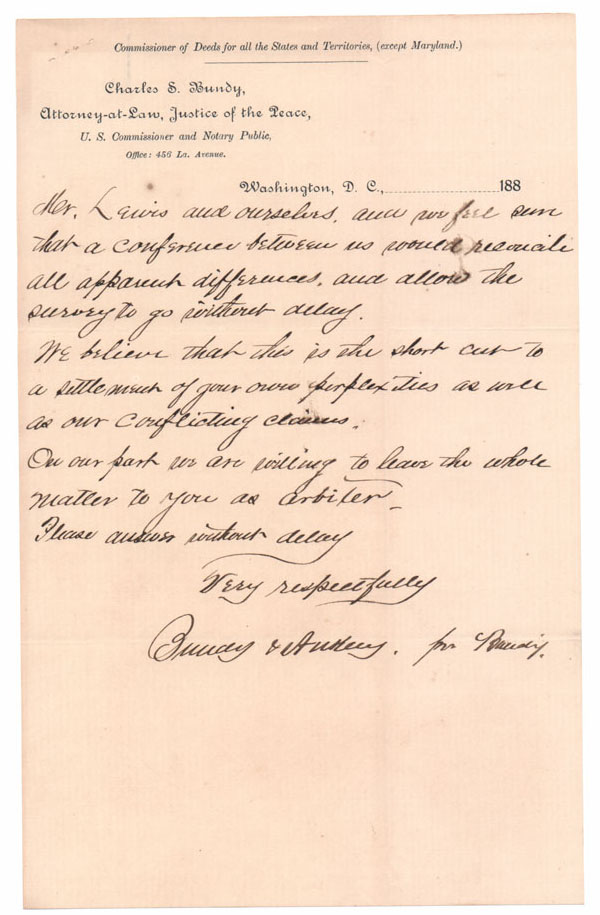 Commissioner of Deeds for all the States and Territories, (except Maryland.)
Charles S. Bundy,
Attorney-at-Law, Justice of the Peace,
U. S. Commissioner and Notary Public,
Office: 456 La. Avenue.
Washington, D. C., 188
Mr. Lewis and ourselves, and we feel sure
that a conference between us would reconcile
all apparent differences, and allow the
survey to go without delay.
We believe that this is the short cut to
a settlement of your own perplexities as well
as our conflicting claims.
On our part we are willing to leave the whole
matter to you as arbiter_
Please answer without delay
Very respectfully
Bundy & . per Bundy.